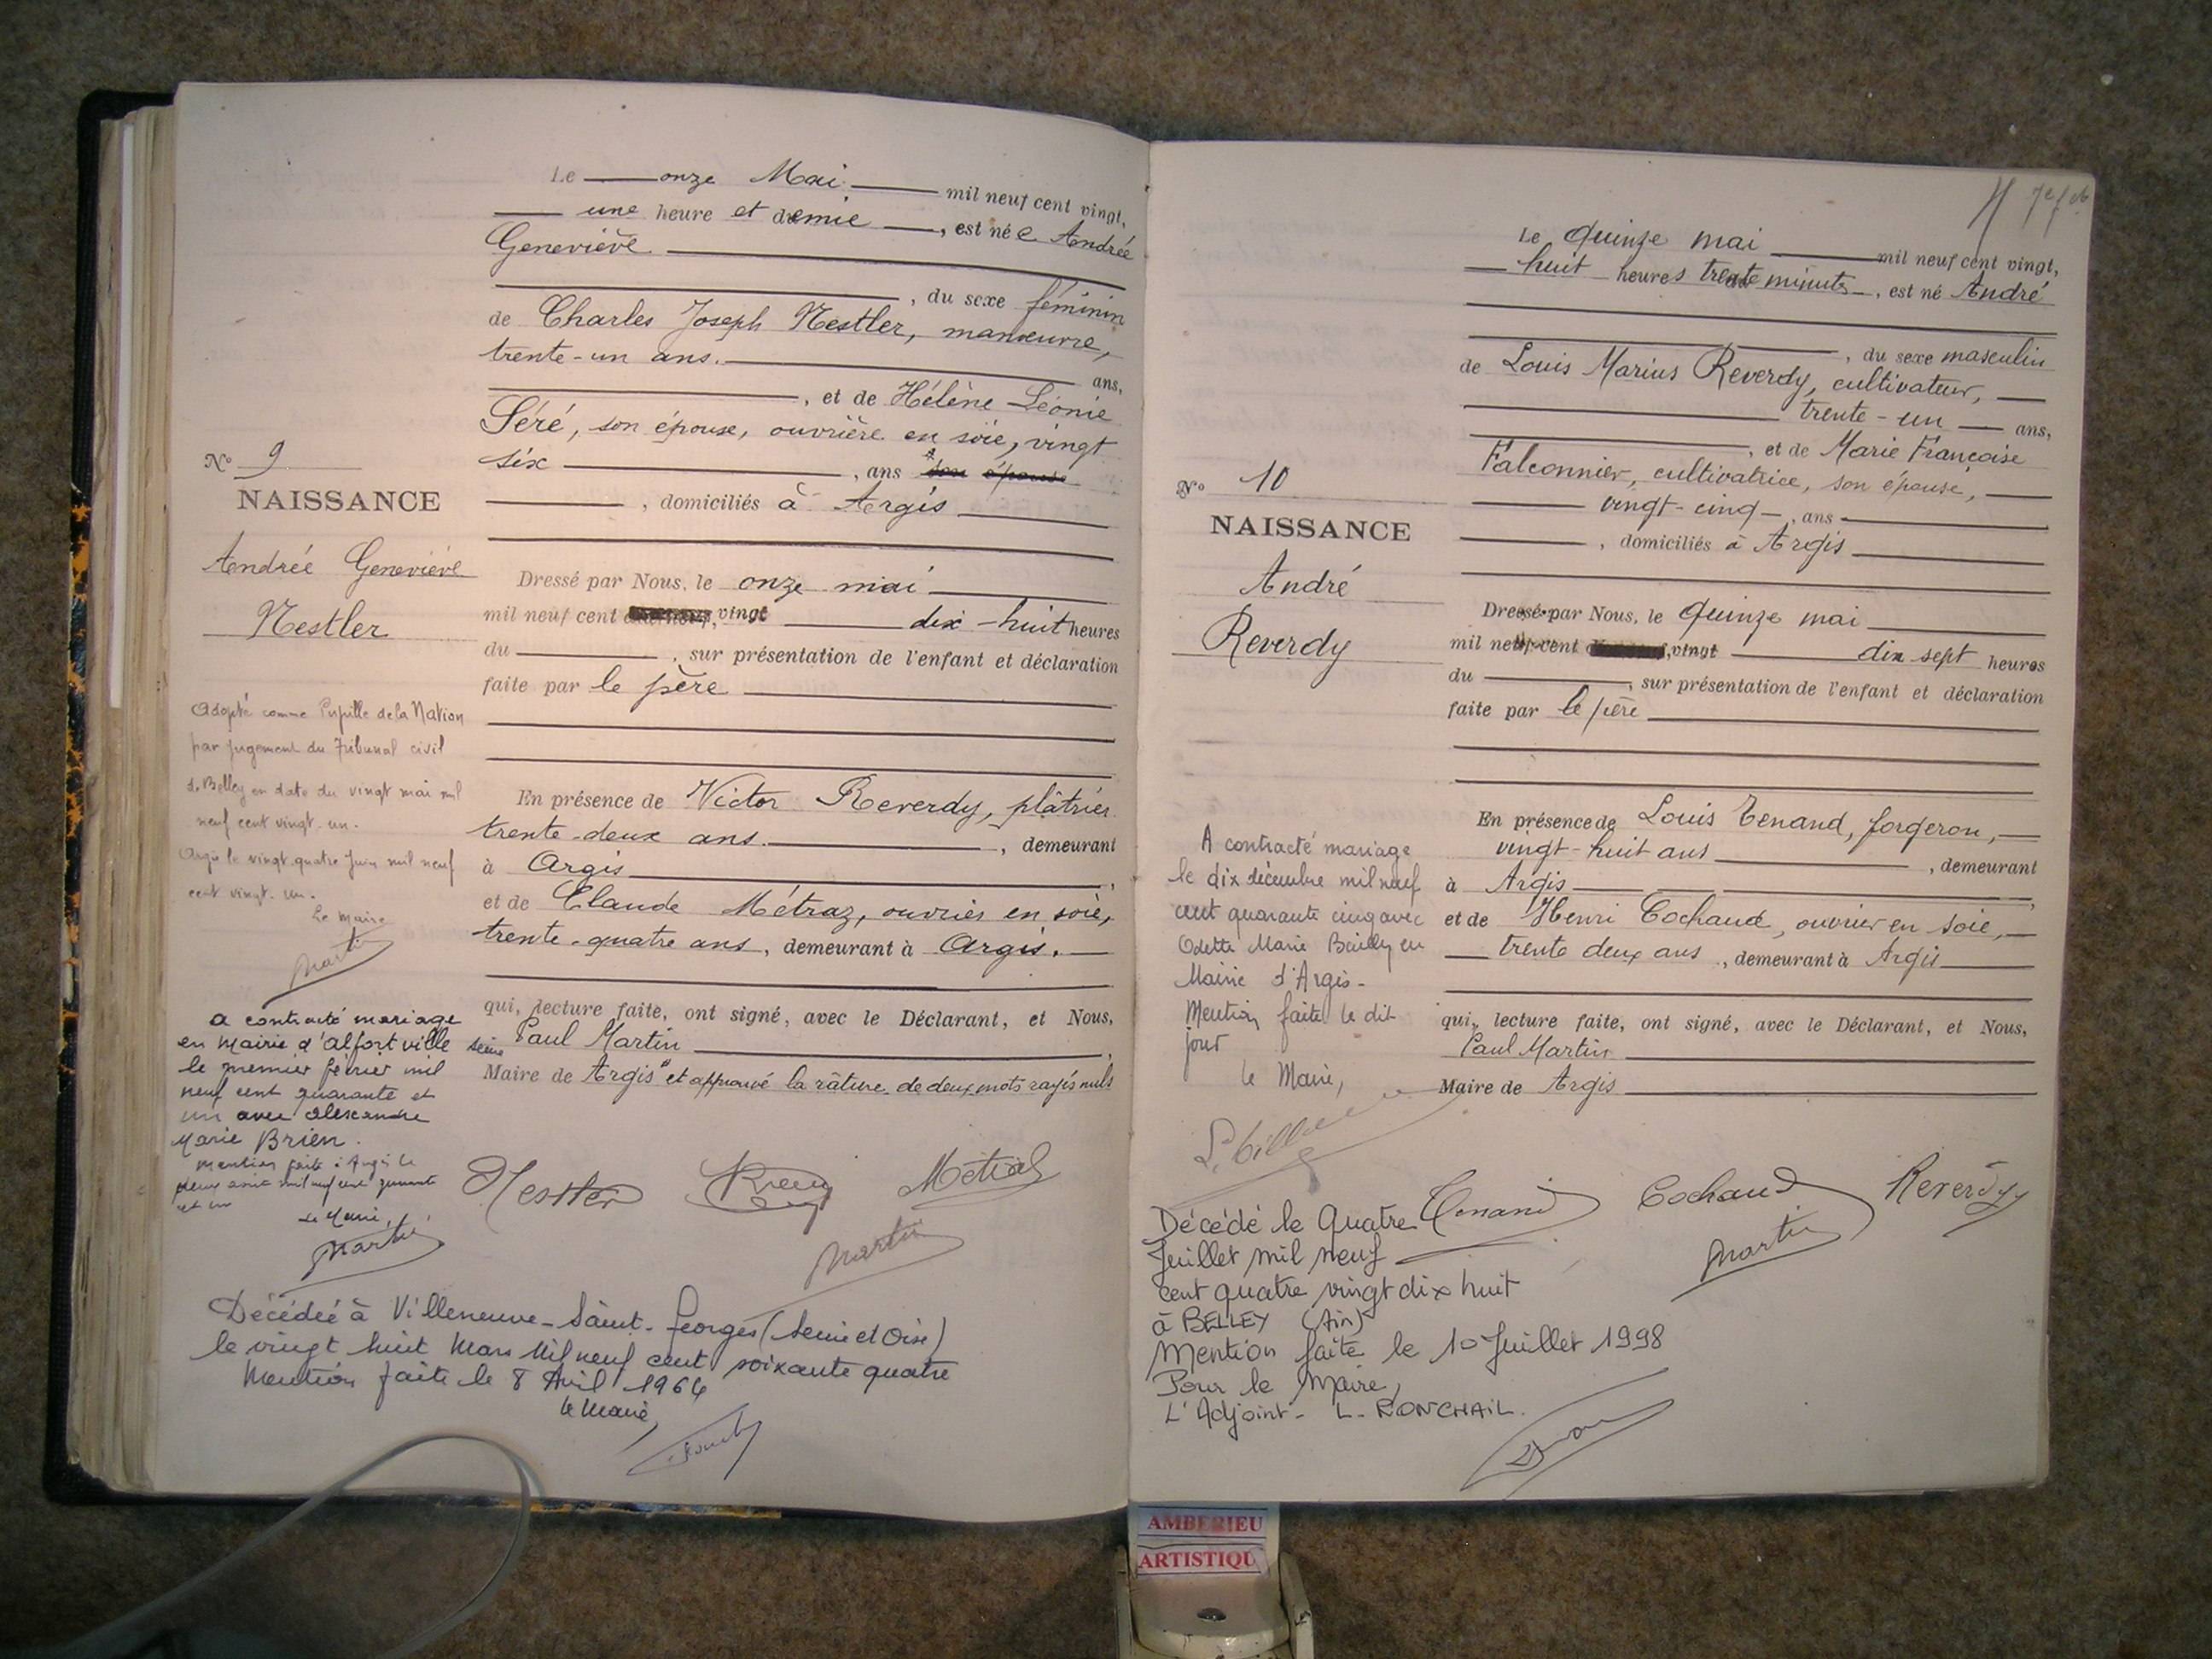 Le onze Mai mil neuf cent vingt,
une heure et demie, est née Andrée
Geneviève
, du sexe féminin
de Charles Joseph Nestler, manœuvre,
trente-un ans.
ans,
, et de Hélène Léonie
Séré, son épouse, ouvrière en soie, vingt
six, ans son épouse
, domiciliés à Argis
N° 9
NAISSANCE
Andrée Geneviève
Nestler
Dressé par Nous, le onze mai
mil neuf cent vingt dix-huit heures
du, sur présentation de l'enfant et déclaration
faite par le père
En présence de Victor Reverdy, plâtrier
trente-deux ans., demeurant
à Argis,
et de Claude Métraz, ouvrier en soie,
trente-quatre ans, demeurant à Argis.
qui, lecture faite, ont signé, avec le Déclarant, et Nous,
Paul Martin,
Maire de Argis et approuvé la râture de deux mots rayés nuls
Adopté comme Pupille de la Nation
par jugement du Tribunal civil
de Belley en date du vingt mai mil
neuf cent vingt-un.
Argis le vingt-quatre Juin mil neuf
cent vingt-un.
Le Maire
Martin
a contracté mariage
en Mairie d'Alfortville Seine
le premier février mil
neuf cent quarante et
un avec Alexandre
Marie Brien.
Mention faite à Argis le
deux août mil neuf cent quarante
et un
Le Maire,
Martin
Nestler
Métraz
Martin
Décédée à Villeneuve-Saint-Georges (Seine et Oise)
le vingt huit Mars Mil neuf cent soixante quatre
Mention faite le 8 Avril 1964
Le Maire,
Le quinze mai mil neuf cent vingt,
huit heures trente minutes, est né André
, du sexe masculin
de Louis Marius Reverdy, cultivateur,
trente-un ans,
, et de Marie Françoise
Falconnier, cultivatrice, son épouse,
vingt-cinq, ans
, domiciliés à Argis
N° 10
NAISSANCE
André
Reverdy
Dressé par Nous, le quinze mai
mil neuf cent vingt dix sept heures
du, sur présentation de l'enfant et déclaration
faite par le père
En présence de Louis Tenand, forgeron,
vingt-huit ans, demeurant
à Argis,
et de Henri Cochaud, ouvrier en soie,
trente deux ans, demeurant à Argis
qui, lecture faite, ont signé, avec le Déclarant, et Nous,
Paul Martin
Maire de Argis
A contracté mariage
le dix décembre mil neuf
cent quarante cinq avec
Odette Marie Bailly en
Mairie d'Argis-
Mention faite le dit
jour
le Maire,
Tenand
Cochaud
Reverdy
Martin
Décédé le Quatre
Juillet mil neuf
cent quatre vingt dix huit
à BELLEY (Ain)
Mention faite le 10 Juillet 1998
Pour le Maire,
L'Adjoint- L-RONCHAIL.
AMBERIEU
ARTISTIQU